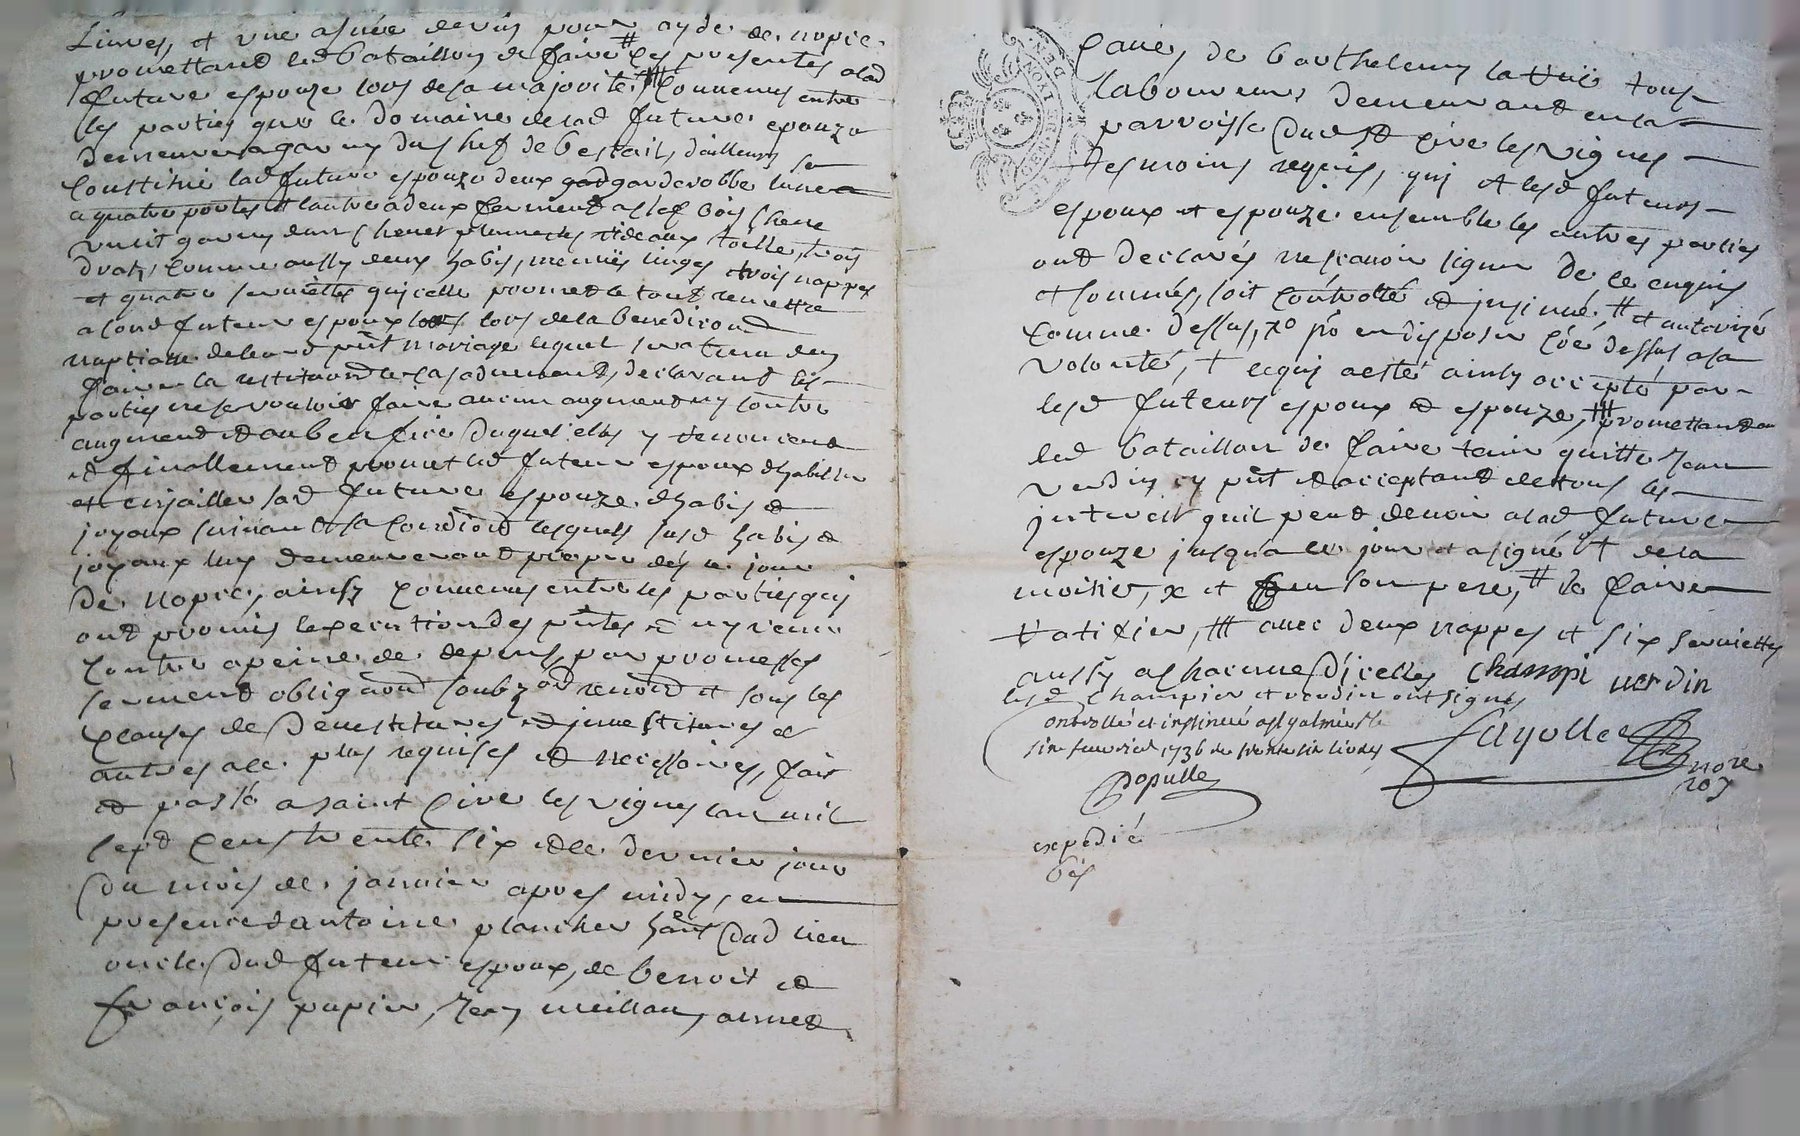 Livres, et une asnée de vin pour ayde de nopce
promettand led bataillon de faire # les presentes alad
future espouze lors de sa majorité # Convenus entre
les parties que le domaine delad future epouze
demeurera garny du chef de bestail, dailleurs se
Constitue lad future espouze deux gad garderobbe lune
a quatre portes et lautre a deux fermend a clef bois chene
un lit garny dun chevet plume les rideaux toille, trois
draps, comme aussy deux habis, menües linges trois nappes
et quatre serviettes quicelle promet le tout remettre
a sond futeur espoux lors de la benediciond
nuptialle deleurd pnt mariage lequel sera tenu den
faire la restitutiond le cas advenand, declarand les
parties ne se vouloir faire aucun augmend ny contre
augmend et au benefice duquel elles y renoncend
et finallemend promet led futeur espoux dhabiller
et enjailler sad future espouze dhabis et
joyaux suivand sa Condiond lesquels susd habis et
joyaux luy demeurerond propre dés le jour
de nopces, ainsy convenus entre les parties qui
ond promis lexecution des pntes et ny venir
Contre a peine de depens, par promesses
sermend obligaond soubz ond renond et sous les
clauses de devestitures et jnvestitures et
autres ace plus requises et necessaires, fait
et passé a saint Cire les vignes lan mil
sept Cens trente six et le dernier jour
du mois de janvier apres midy, en
presence dantoine plancher habt dud lieu
oncle dud futeur espoux, de benoit et
françois papin, Jean meillan, aimed
de barthelemy la tous
laboureurs demeurand en la
parroisse dud st Cire les vignes
tesmoins requis, qui et lesd futeurs
espoux et espouze ensemble les autres parties
ond declarés ne scavoir signer de ce enquis
et sommés, soit Controllé et jnsinué # et autorizé
comme dessus, po en disposer coe dessus a sa
volonté, + cequi aesté ainsy accepté par
lesd futeurs espoux et espouze, # promettand
led bataillon de faire tenir quitte Jean
verdin cy pnt et acceptand de tous les
jnterest quil peud devoir alad future
espouze jusqua ce jour et a signé + de la
moitier, x et son pere, # de faire
ratifier, # avec deux nappes et six serviettes
aussy a chacune dicelles Champi verdin
lesd Champier et verdin ont signes
Controllé et insinué a st galmier le
six fevrier 1736 Livres
Fayolle
nore
roy
Populle
expedié
bis